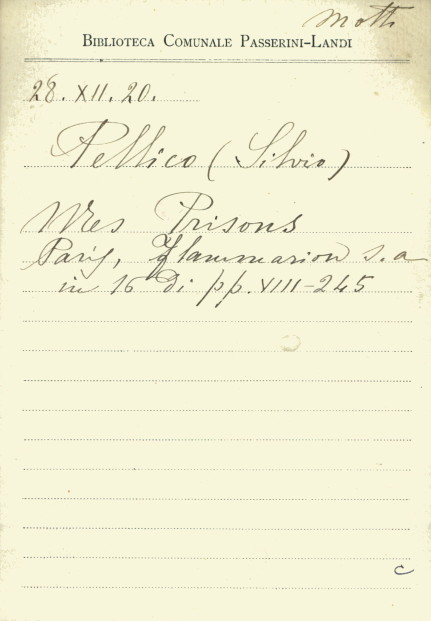 Motti
BIBLIOTECA COMUNALE PASSERINI-LANDI
28. XII. 20.
Pellico (Silvio)
Mes Prisons
Paris, Flammarion s. a
in 16 di pp. VIII-245
c